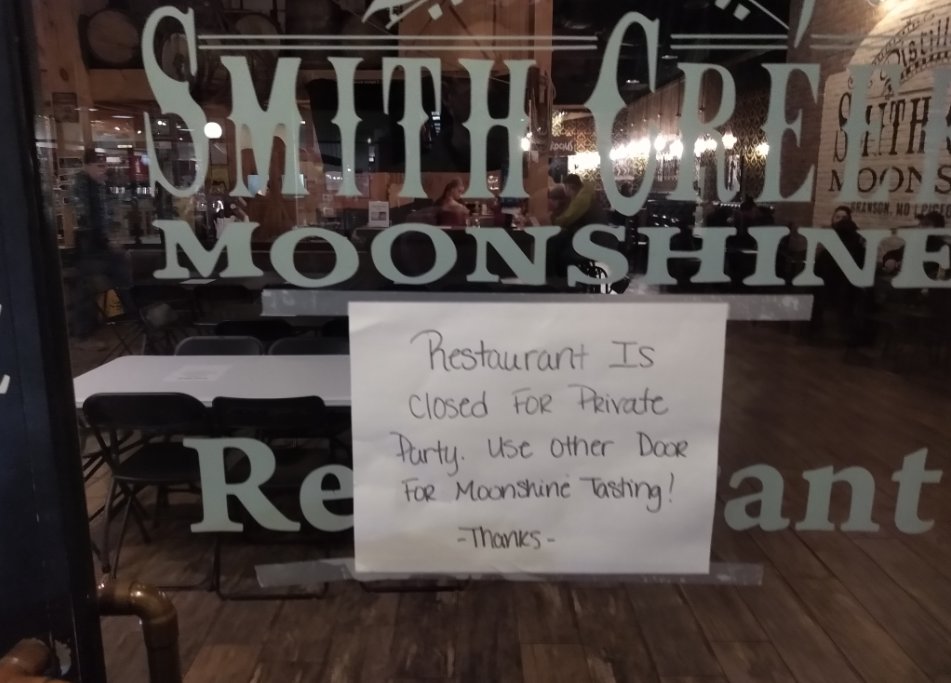 Smith Creek
Moonshine
Restaurant Is
Closed For Private
Party. Use Other Door
For Moonshine Tasting!
-Thanks-
Re
ant
Smith
Moons
Branson, Mo